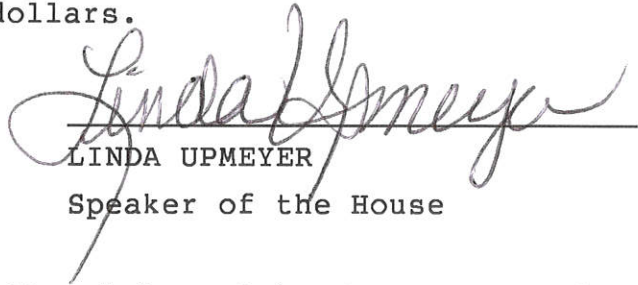 dollars.
Linda Upmeyer
LINDA UPMEYER
Speaker of the House